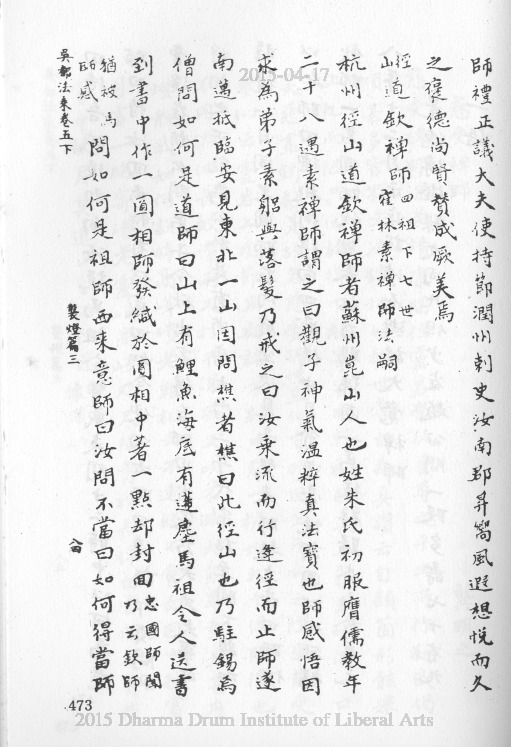 師禮正議大夫使持節潤州刺史汝南郡昇嚮風遐想悅而久
之褒德尚賢贊成厥美焉
徑山道欽禪師四祖下七世鶴林素禪師法嗣
杭州徑山道欽禪師者蘇州崑山人也姓朱氏初服膺儒教年
二十八遇素禪師謂之曰觀子神氣溫粹真法寶也師感悟因
求為弟子素躬與落髮乃戒之曰汝乘流而行逢徑而止師遂
南邁抵臨安見東北一山因問樵者樵曰此徑山也乃駐錫焉
僧問如何是道師曰山上有鯉魚海底有蓬塵馬祖令人送書
到書中作一圓相師發緘於圓相中著一點却封回忠國師聞乃云欽師
猶被馬師惑問如何是祖師西來意師曰汝問不當曰如何得當師
吳都法乘卷五下
製燈篇三
473
2015-04-17
2015 Dharma Drum Institute of Liberal Arts